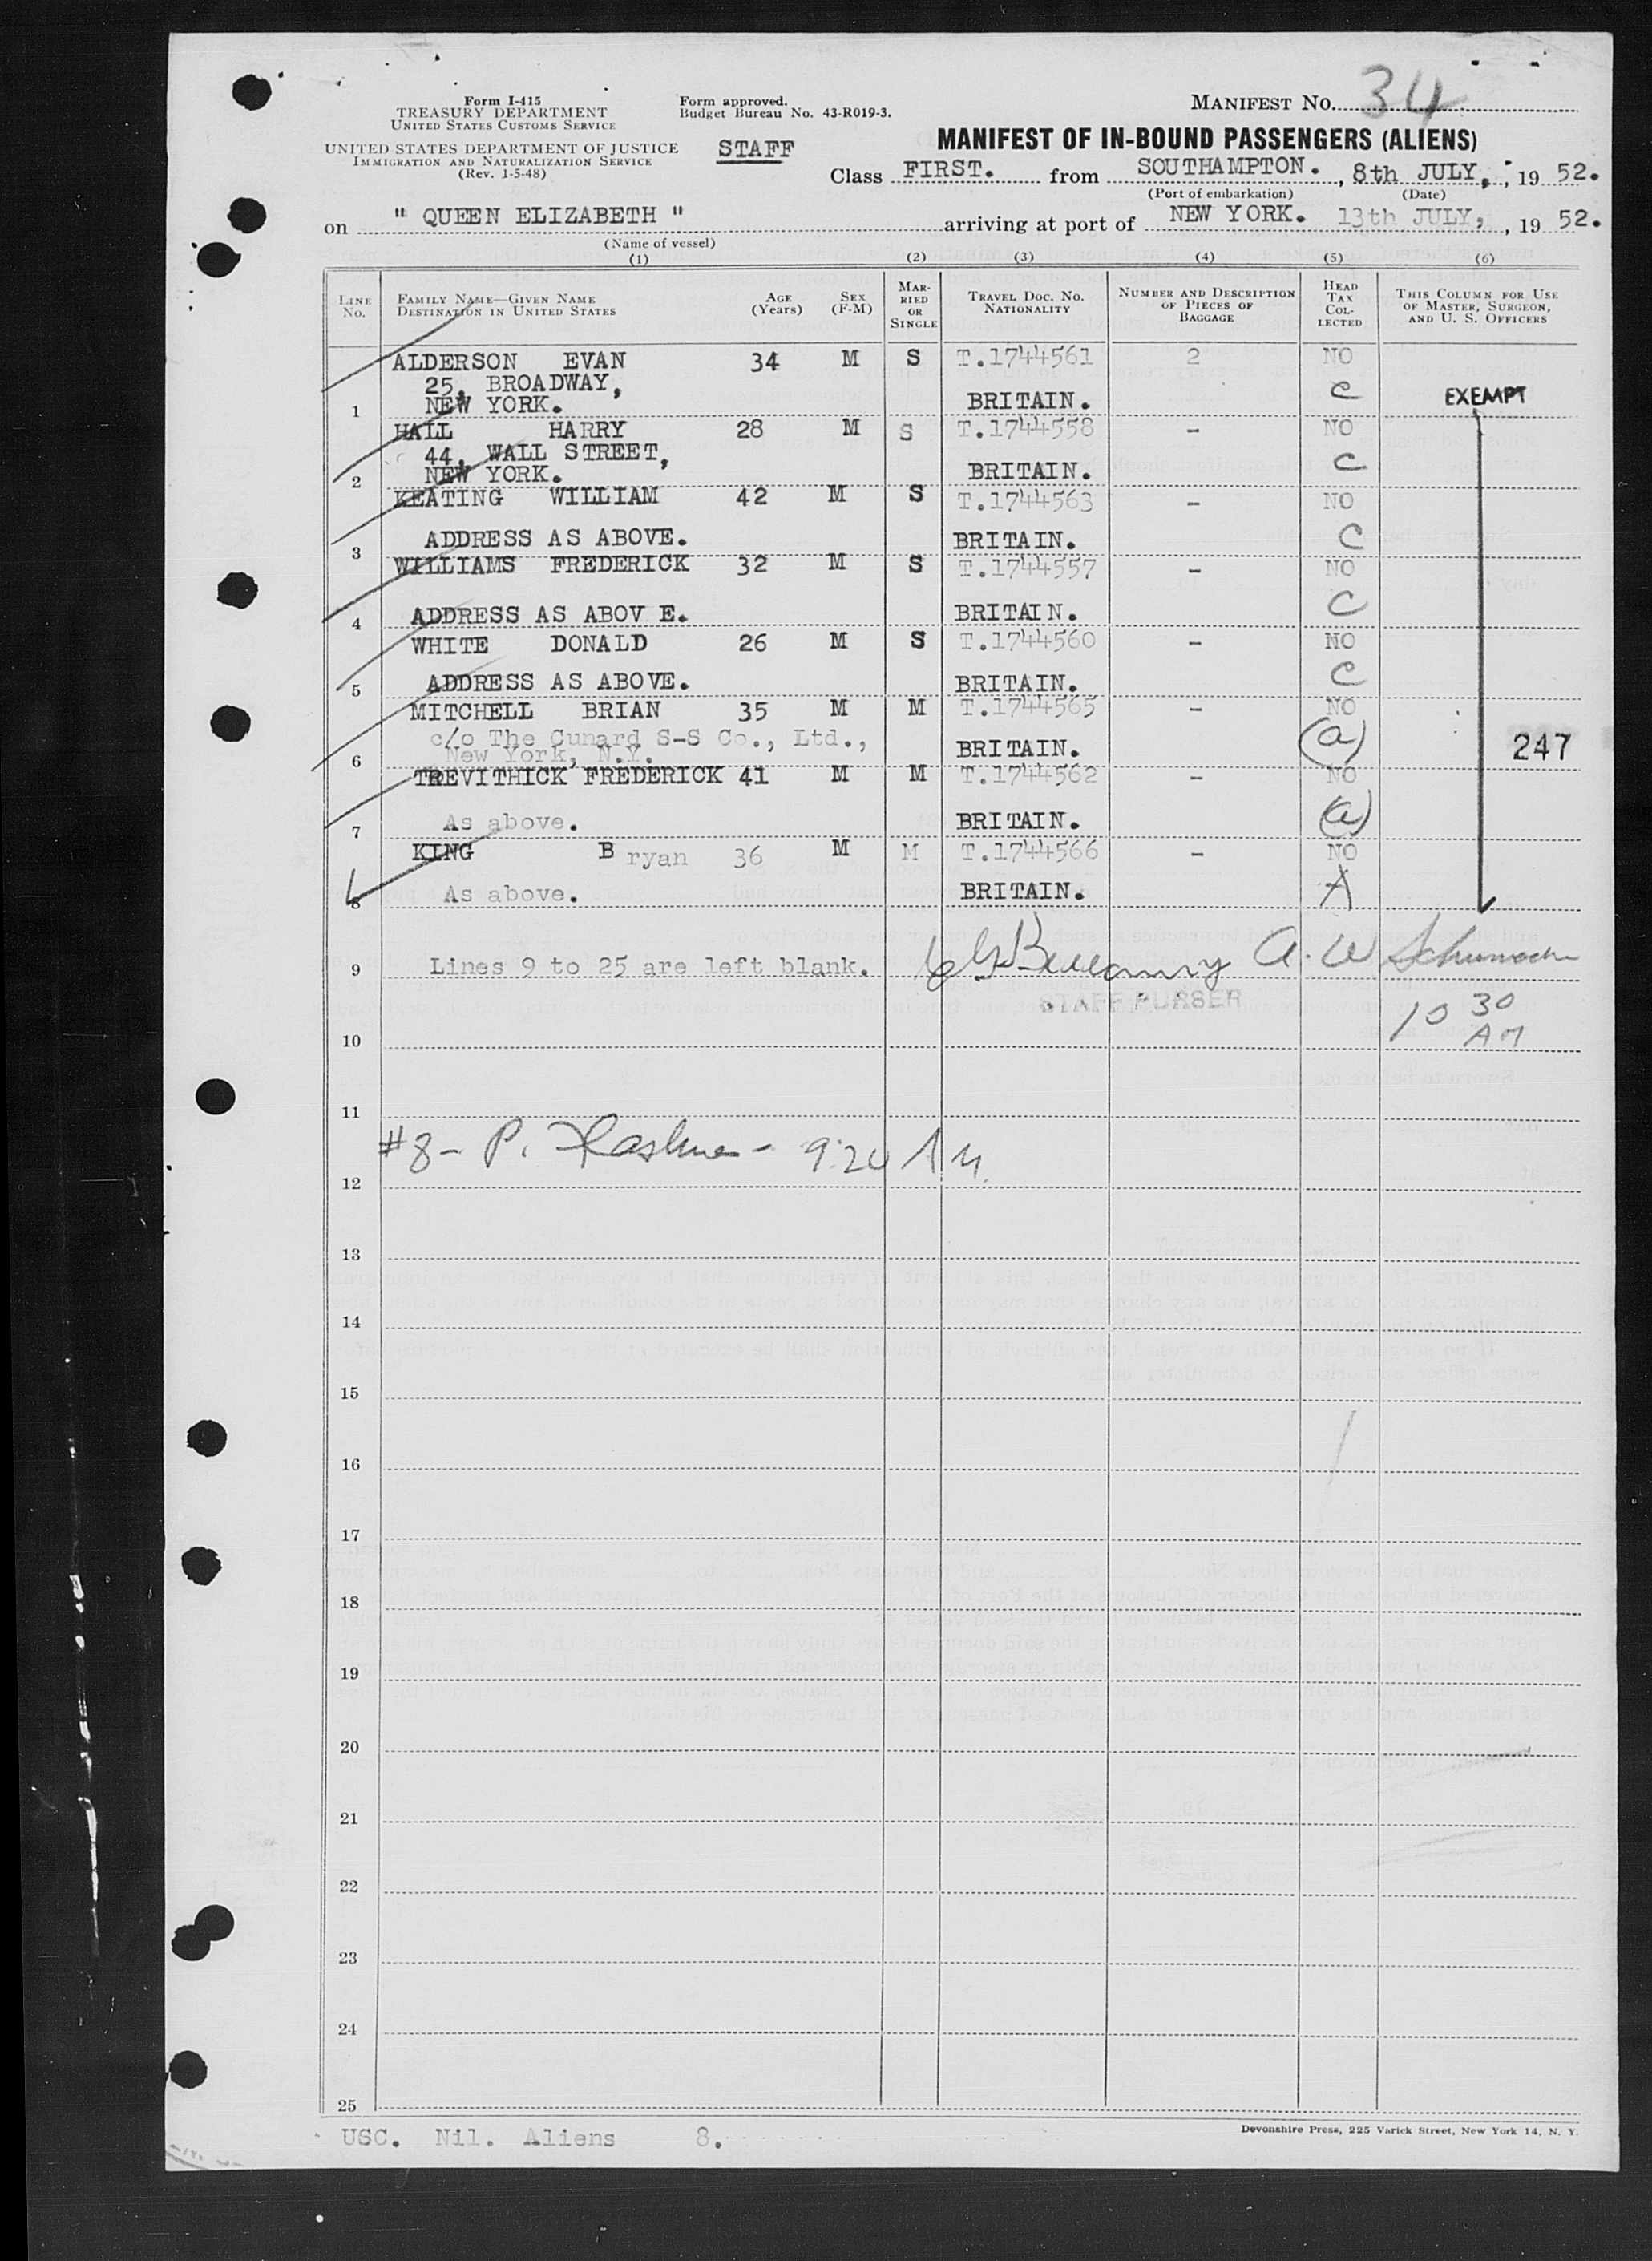 Form I-415
TREASURY DEPARTMENT
UNITED STATES CUSTOMS SERVICE
UNITED STATES DEPARTMENT OF JUSTICE
IMMIGRATION AND NATURALIZATION SERVICE
(Rev. 1-5-48)
Form approved.
Budget Bureau No. 43-R019-3.
STAFF
MANIFEST No. 34
MANIFEST OF IN-BOUND PASSENGERS (ALIENS)
Class FIRST. from SOUTHAMPTON. , 8th JULY, , 19 52.
(Port of embarkation) (Date)
on " QUEEN ELIZABETH " arriving at port of NEW YORK. 13th JULY, , 19 52.
(Name of vessel)
(1) (2) (3) (4) (5) (6)
LINE No. FAMILY NAME—GIVEN NAME DESTINATION IN UNITED STATES AGE (Years) SEX (F-M) MARRIED OR SINGLE TRAVEL DOC. NO. NATIONALITY NUMBER AND DESCRIPTION OF PIECES OF BAGGAGE HEAD TAX COLLECTED THIS COLUMN FOR USE OF MASTER, SURGEON, AND U. S. OFFICERS
ALDERSON EVAN 34 M S T.1744561 2 NO
25, BROADWAY, C EXEMPT
1 NEW YORK. BRITAIN.
HALL HARRY 28 M S T.1744558 - NO
44, WALL STREET, C
2 NEW YORK. BRITAIN.
KEATING WILLIAM 42 M S T.1744563 - NO
3 ADDRESS AS ABOVE. BRITAIN. C
WILLIAMS FREDERICK 32 M S T.1744557 - NO
4 ADDRESS AS ABOV E. BRITAIN. C
WHITE DONALD 26 M S T.1744560 - NO
5 ADDRESS AS ABOVE. BRITAIN. C
MITCHELL BRIAN 35 M M T.1744565 - NO
c/o The Cunard S-S Co., Ltd.,
6 New York, N.Y. BRITAIN. (a) 247
TREVITHICK FREDERICK 41 M M T.1744562 - NO
7 As above. BRITAIN. (a)
KING Bryan 36 M M T.1744566 - NO
8 As above. BRITAIN. A
9 Lines 9 to 25 are left blank. A. W
STAFF PURSER
10 10 30 AM
11
#8 - P. 9:20 AM.
12
13
14
15
16
17
18
19
20
21
22
23
24
25
USC. Nil. Aliens 8.
Devonshire Press, 225 Varick Street, New York 14, N. Y.